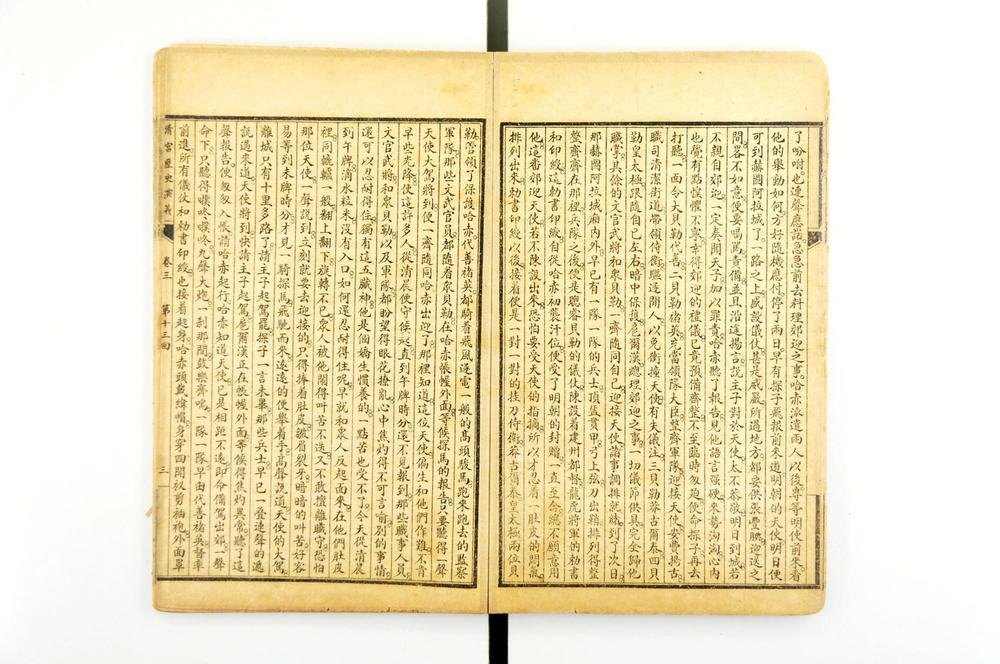 了吩咐也連聲應諾急急前去料理郊迎之事哈赤派遣兩人以後專等明使前來看
他的舉動如何方好隨機應付停了兩日早有探子飛報前來道明朝的天使明日便
可到赫圖阿拉城了一路之上威設儀仗甚是威嚴所過地方都要供張豐腆迎送之
間畧不如意便要喝罵責備並且沿途揚言說主子對於天使太不恭敬明日到城若
不親自郊迎一定奏聞天子加以罪責哈赤聽了報告見他語言强硬來勢洶洶心內
也覺有點惶懼不寧幸得郊迎的禮儀已竟預備齊整不至臨時匆廹便命探子再去
打聽一面令大貝勒代善二貝勒褚英充當領隊大臣整齊軍隊迎接天使安費揚古
職司清潔街道帶領侍衛驅逐閒人以免衝撞天使有失儀注三貝勒莽古爾泰四貝
勒皇太極跟隨自己左右暗中保護扈爾漢總理郊迎之事一切儀節供具完全歸他
職掌其餘的文官武將和衆貝勒一齊隨同自己迎接天使諸事調排就緒到了次日
那赫圖阿拉城廂內外早已有一隊一隊的兵士頂盔貫甲弓上弦刀出鞘排列得整
整齊齊在那裡兵隊之後便是聰睿貝勒的儀仗陳設着建州都督龍虎將軍的勅書
和印綬這勅書印綬自從哈赤初襲汗位便受了明朝的封贈一直至今總不願意用
他這番郊迎天使若不陳設出來恐怕要受天使的指摘所以才忍着一肚皮的悶氣
排列出來勅書印綬以後接着便是一對一對的挂刀侍衛莽古爾泰皇太極兩位貝
勒管領了保護哈赤代善褚英都騎着飛風逐電一般的高頭駿馬跑來跑去的監察
軍隊那些文武官員都隨着衆貝勒在哈赤帳幄外面等候探馬的報告只要聽得一聲
天使大駕將到便一齊隨同哈赤出迎了那裡知道這位天使偏生和他們作難不肯
早些光降使這許多人從清晨便守候起直到午牌時分還不見報到那些職事人員
文官武將和衆貝勒以及軍隊都盼望得眼花撩亂心中焦灼得不可言喻別的事情
還可以忍耐得住獨有這五臟神他是個嬌生慣養的一點苦也受不了今天從清晨
到午牌滴水粒米沒有入口如何還忍耐得住呢早就和衆人反起面來在他們肚皮
裡同轆轤一般翻上翻下旋轉不已衆人被他鬧得叫苦不迭又不敢擅離職守恐怕
那位天使一聲說到立刻就要去迎接的只得捧着肚皮皺眉裂牙暗暗的叫苦好容
易等到未牌時分才見一騎探馬飛馳而來遠遠的便舉着手高聲說道天使的大駕
離城只有十里多路了請主子起駕罷探子一言未畢那些兵士早已一疊連聲的遞
說過來道天使將到快請主子起駕扈爾漢正在帳幄外面等候得焦灼異常聽了這
聲報告便匆匆入帳請哈赤起行哈赤知道天使已是相距不遠即命備駕出郊一聲
命下只聽得噗咚噗咚九聲大炮一剎那間鼓樂齊鳴一隊一隊早由代善褚英督率
前進所有儀仗和勅書印綬也接着起身哈赤頭戴緯帽身穿四開衩箭袖袍外面罩
清宮歷史演義
卷三
第十三回
三